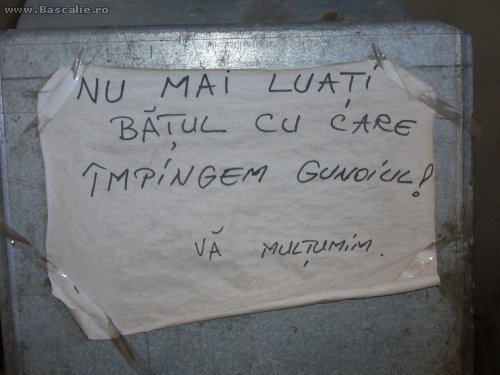 www.Bascalie.ro
NU MAI LUAȚI
BĂȚUL CU CARE
ÎMPINGEM GUNOIUL!
VĂ MULȚUMIM.